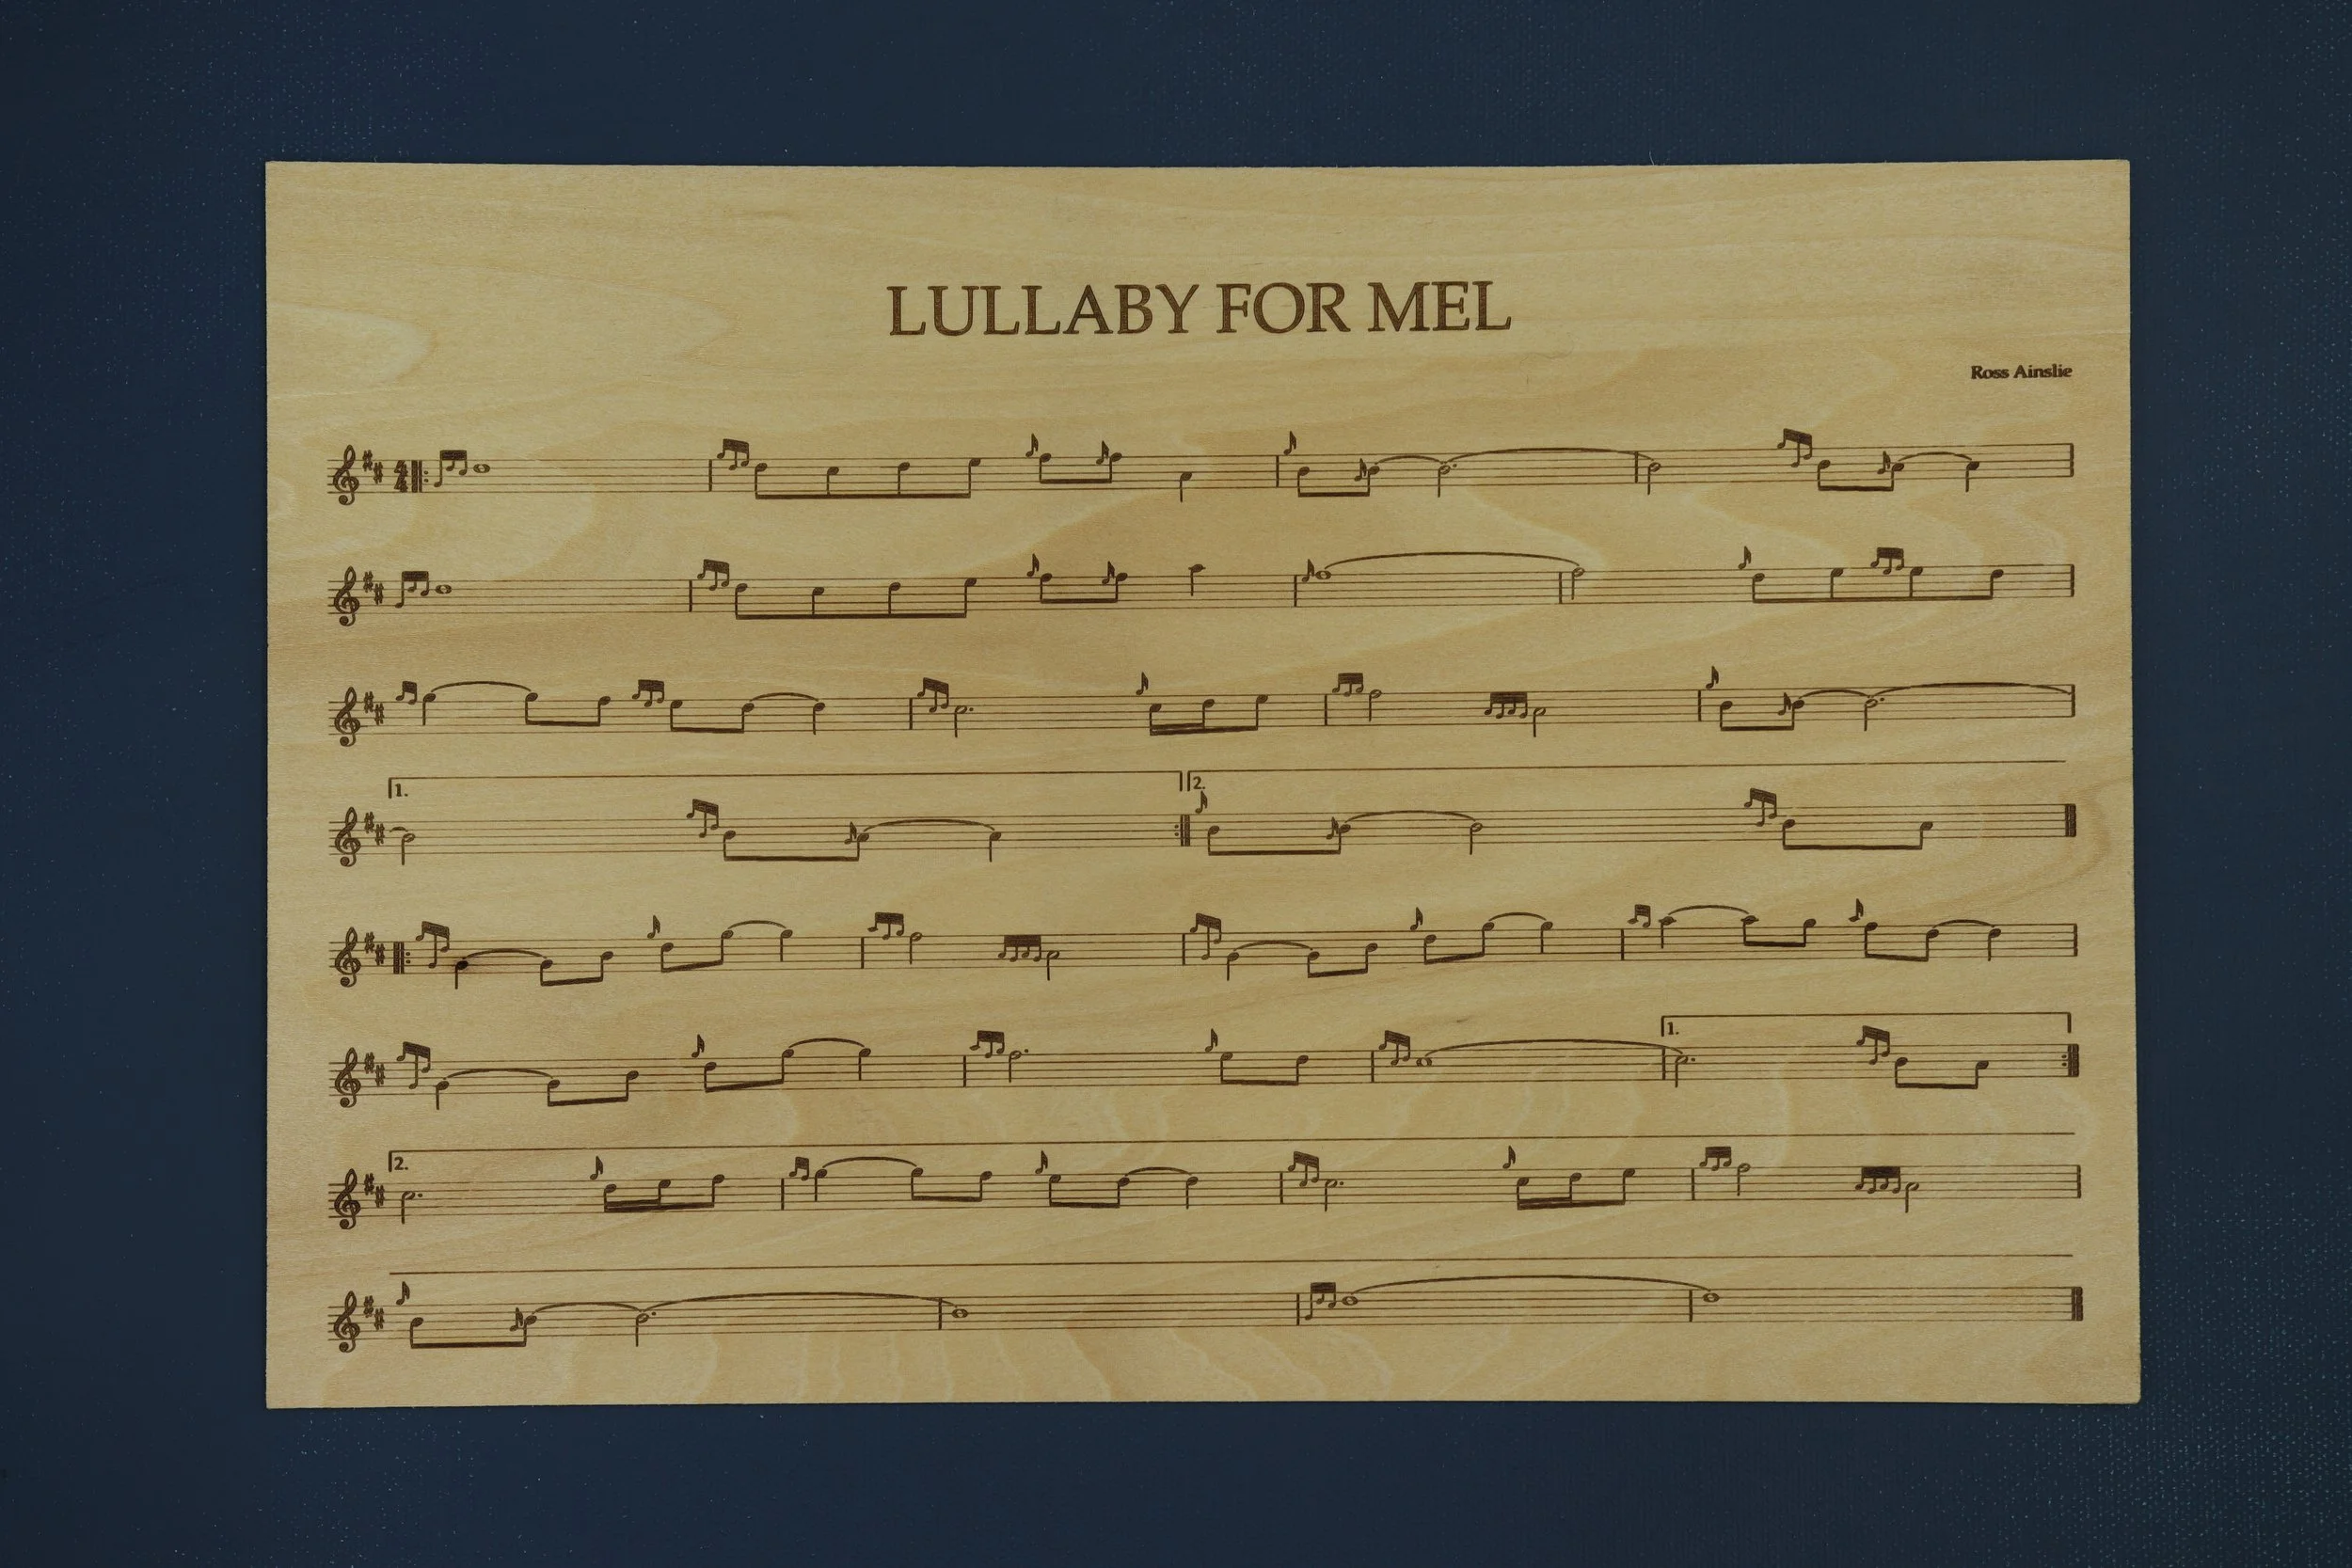 LULLABY FOR MEL
Ross Ainslie
4
4
1.
2.
1.
2.